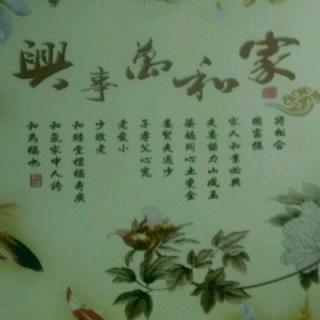 家和萬事興
將相合
國富強
家人和業始興
夫妻協力山成玉
婆媳同心土變金
妻賢夫過少
子孝父心寬
老愛小
少敬老
和睦堂禮福壽廣
和氣家中人
和為福也